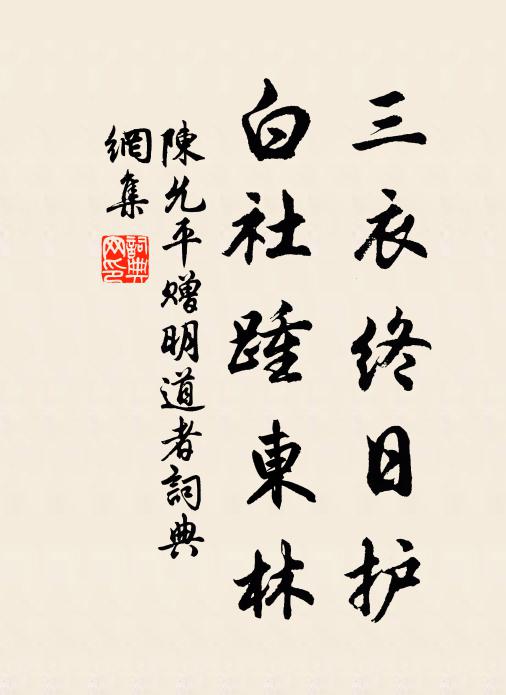 三衣终日护
白社踵東林
陳允平赠明道者詞典
網集
詞典網印